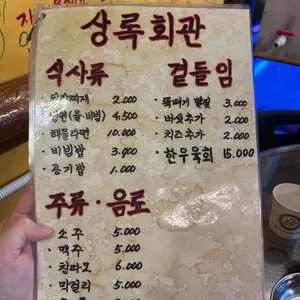 상록회관
식사류
된장찌개 2.000
냉면(물·비빔) 4.500
해물라면 10.000
비빔밥 3.000
공기밥 1.000
곁들임
뚝배기 계란찜 3.000
버섯추가 2.000
치즈추가 2.000
한우육회 15.000
주류·음료
소주 5.000
맥주 5.000
칭따오 6.000
막걸리 5.000